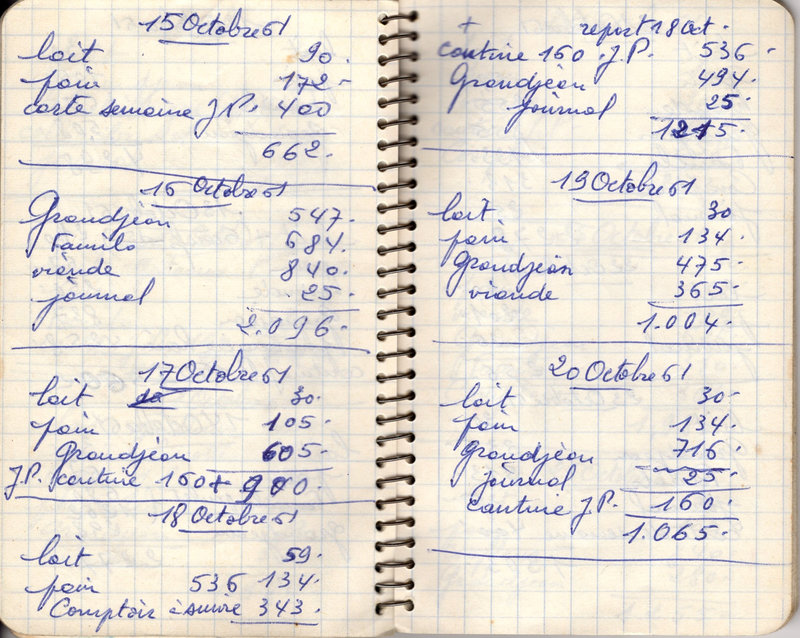 15 Octobre 61
lait 90.
pain 172-
carte semaine J.P. 400
662.
16 Octobre 61
Grandjean 547.
Famila 684.
viande 840.
journal 25.
2.096.
17 Octobre 61
lait 30.
pain 105.
Grandjean 605.
J.P. cantine 160+ 900.
18 Octobre 61
lait 59.
pain 536 134.
Comptoir à suivre 343.
+ report 18 Oct.
cantine 160. J.P. 536-
Grandjean 494.
journal 25.
1215.
19 Octobre 61
lait 30
pain 134.
Grandjean 475-
viande 365.
1.004.
20 Octobre 61
lait 30-
pain 134.
Grandjean 716-
journal 25.
cantine J.P. 160.
1.065.